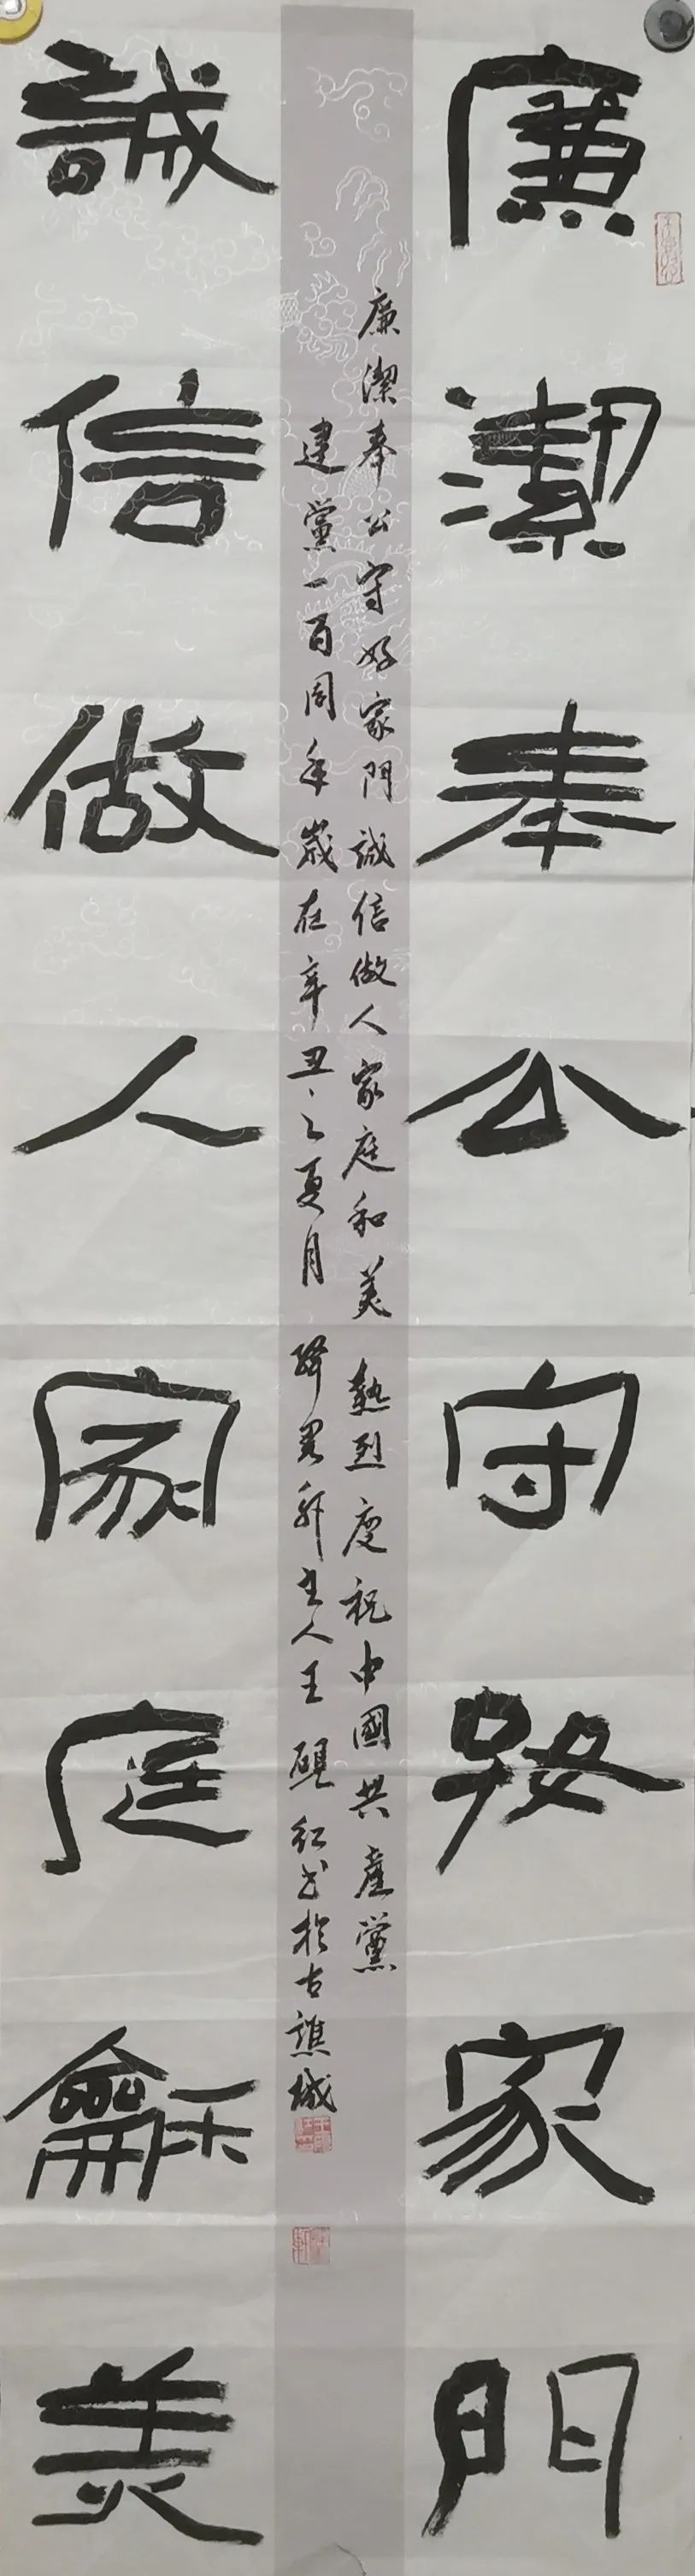 廉潔奉公守好家門
廉潔奉公守好家門誠信做人家庭和美熱烈慶祝中國共產黨
建黨一百周年歲在辛丑之夏月 主人王硯紅書於古譙城
誠信做人家庭龢美